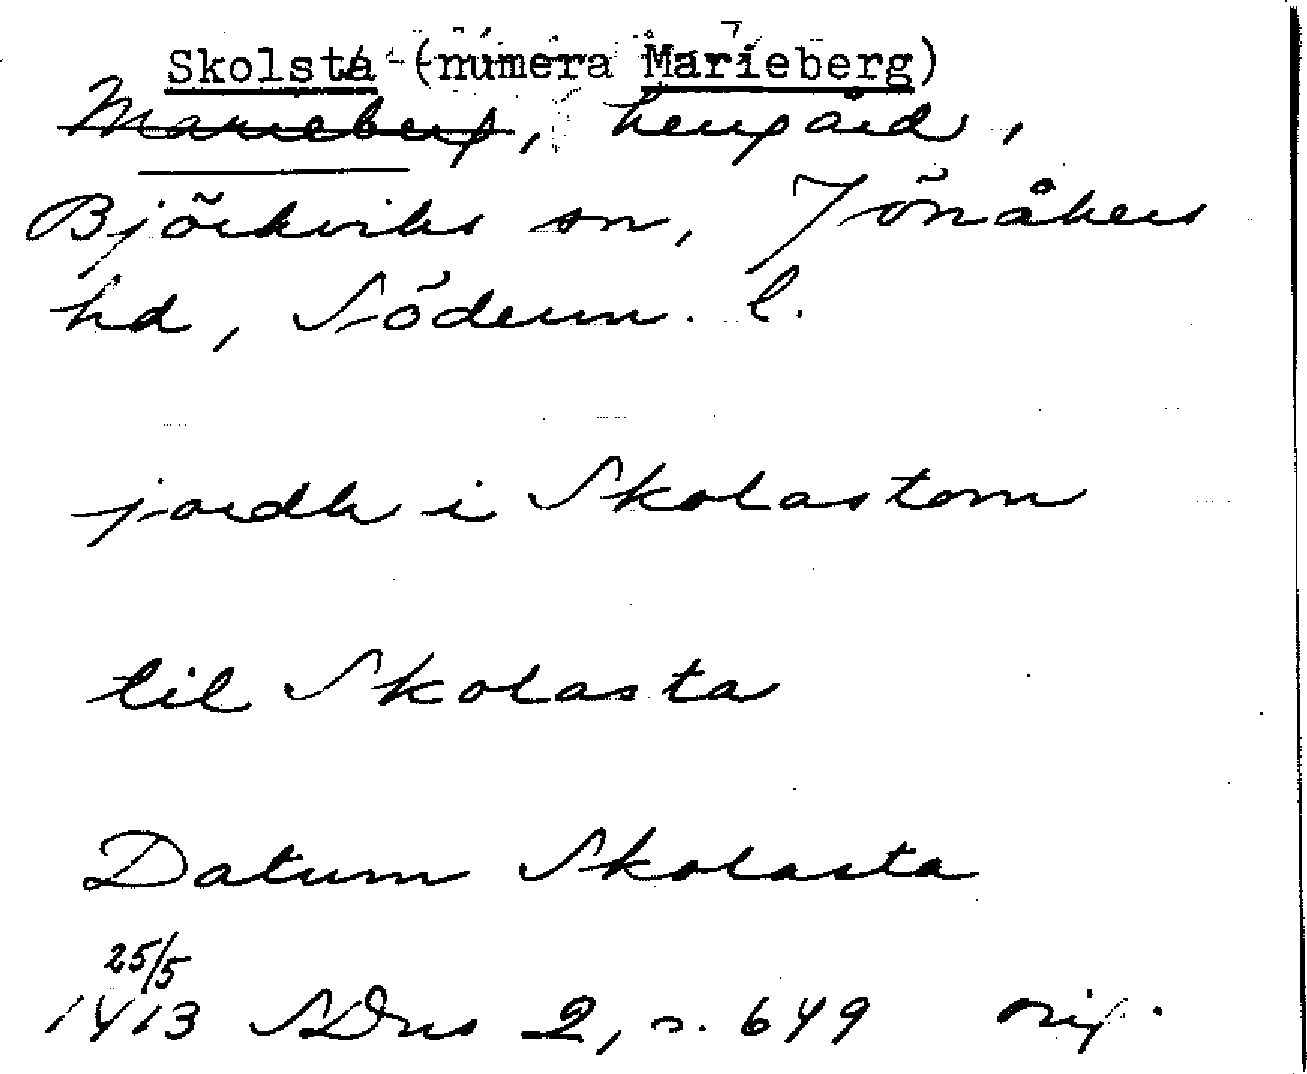 Skolsta (numera Marieberg)
Marieberg, herrgård,
Björkviks sn, Jönåkers
hd, Söderm. l.
jordh i Skolastom
til Skolasta
Datum Skolasta
25/5
1413 SDns 2, s. 649 orig.